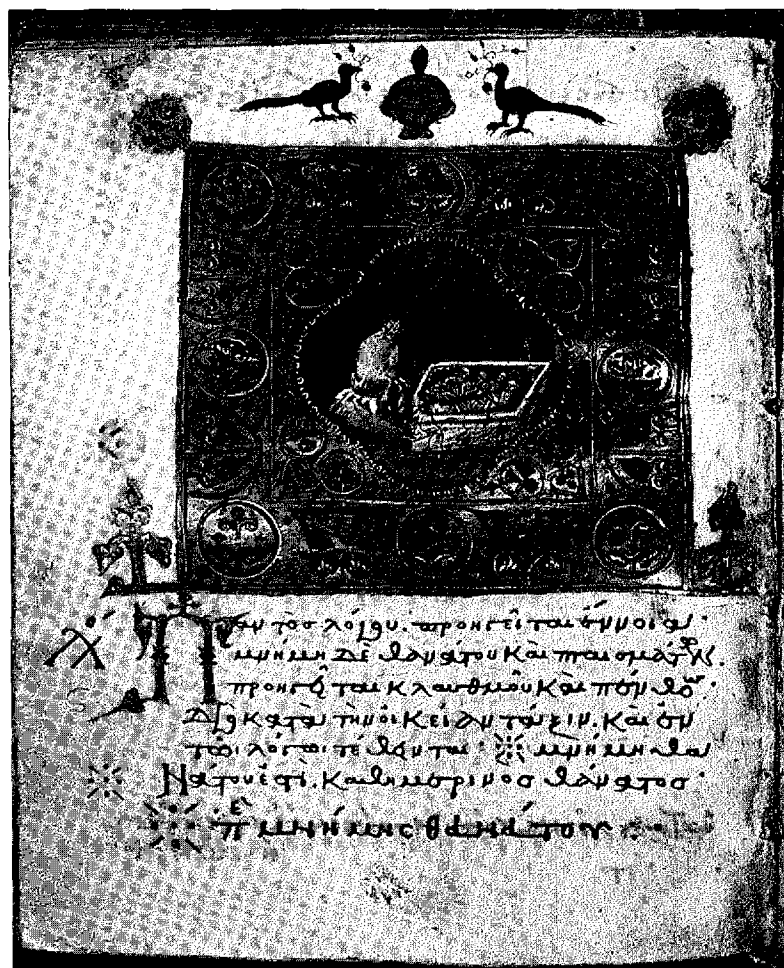 Παντὸς λόγου. προηγεῖται ἔννοια·
μνήμη δὲ θανάτου καὶ πταισμάτων.
προηγεῖται κλαυθμοῦ καὶ πένθους·
Διὸ κατὰ τὴν οἰκείαν τάξιν. καὶ ἐν
τῶι λόγωι τέθειται· μνήμη θα
Νάτου ἐστὶ. καθημερινὸς θάνατος·
μνήμης θανάτου